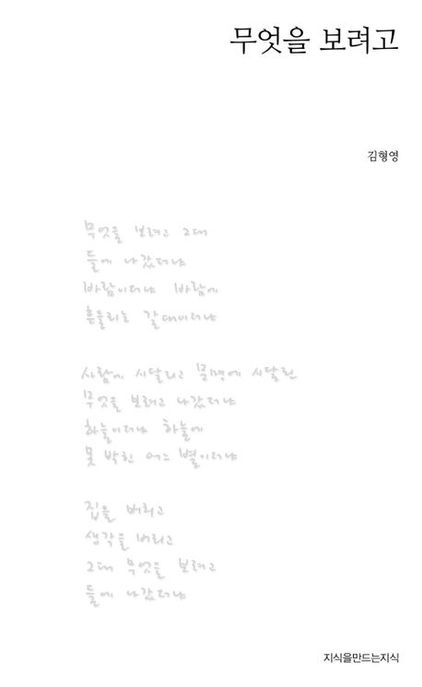 무엇을 보려고
김형영
무엇을 보려고 그대
들에 나갔더냐
바람이더냐 바람에
흔들리는 갈대이더냐
사람에 시달리고 문명에 시달린
무엇을 보려고 나갔더냐
하늘이더냐 하늘에
못 박힌 어느 별이더냐
집을 버리고
생각을 버리고
그대 무엇을 보려고
들에 나갔더냐
지식을만드는지식